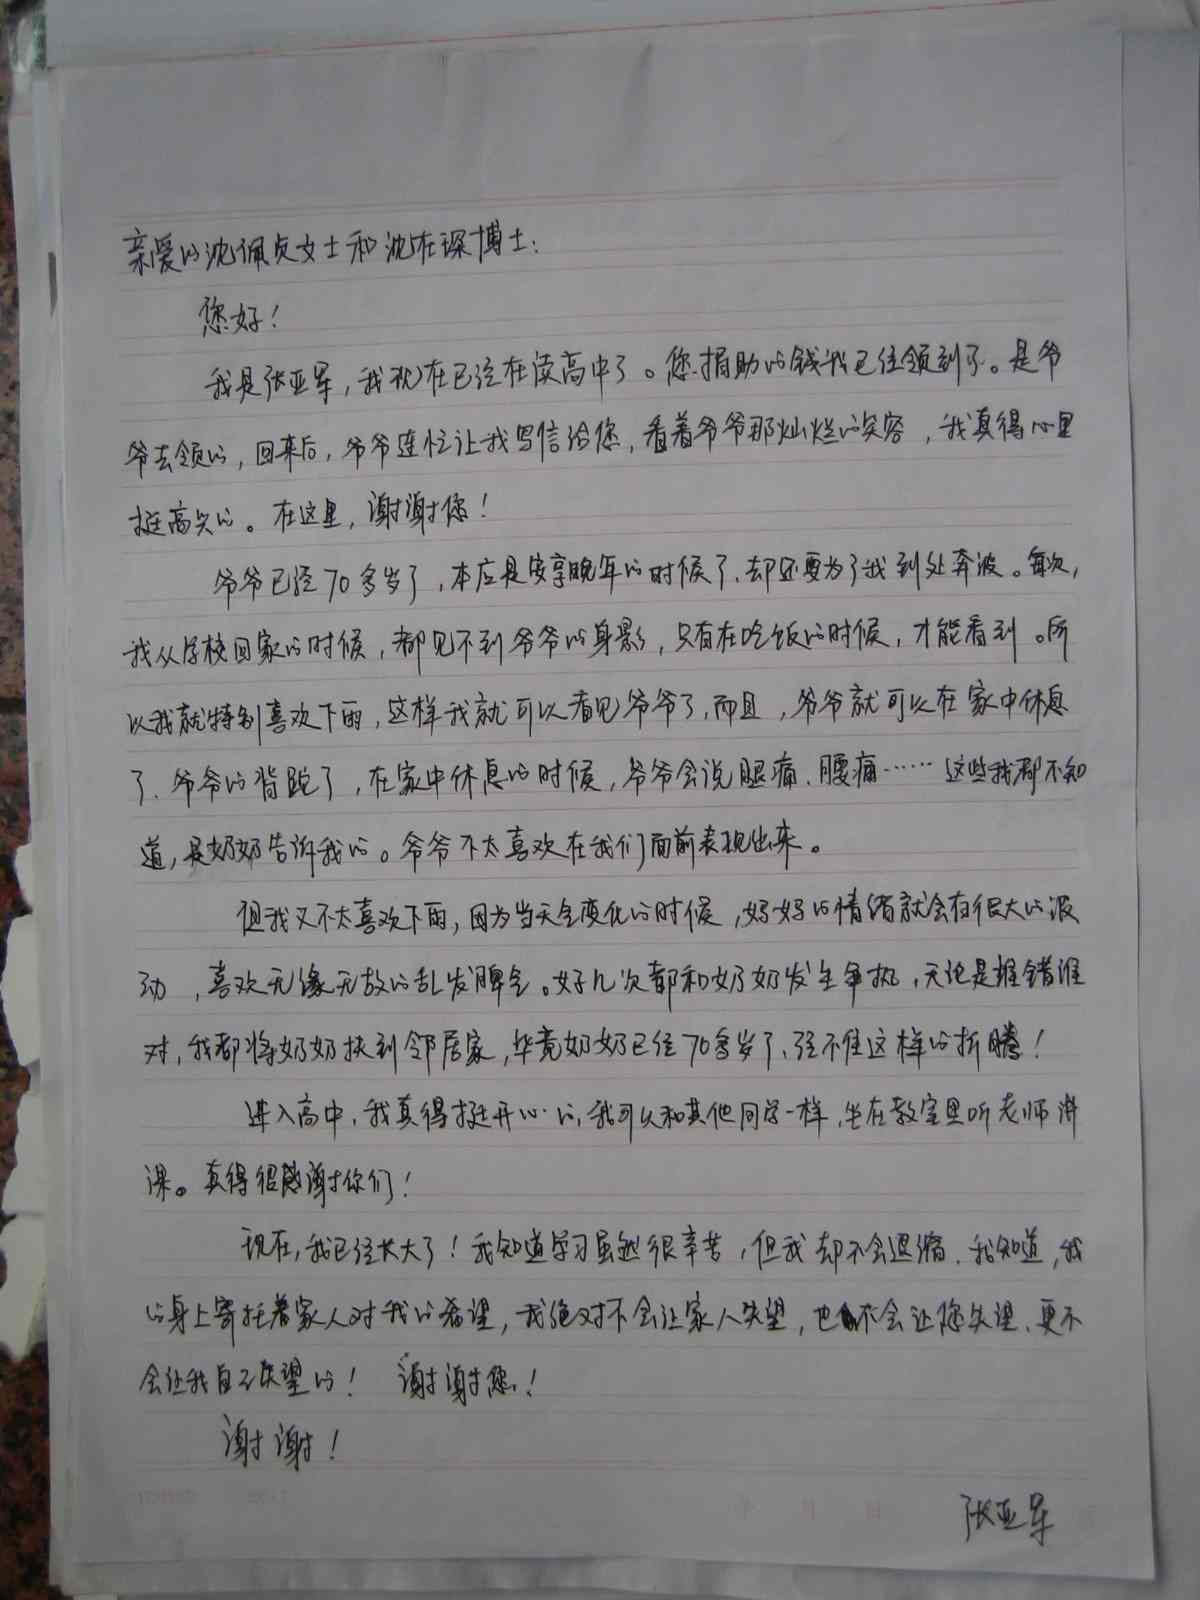 亲爱的沈佩贞女士和沈在琛博士:
您好!
我是张亚军,我现在已经在读高中了。您捐助的钱我已经领到了。是爷
爷去领的,回来后,爷爷连忙让我写信给您,看着爷爷那灿烂的笑容,我真得心里
挺高兴的。在这里,谢谢您!
爷爷已经70多岁了,本应是安享晚年的时候了,却还要为了我到处奔波。每次,
我从学校回家的时候,都见不到爷爷的身影,只有在吃饭的时候,才能看到。所
以我就特别喜欢下雨,这样我就可以看见爷爷了,而且,爷爷就可以在家中休息
了、爷爷的背跎了,在家中休息的时候,爷爷会说腿痛、腰痛……这些我都不知
道,是奶奶告诉我的。爷爷不太喜欢在我们面前表现出来。
但我又不太喜欢下雨,因为当天气变化的时候,妈妈的情绪就会有很大的波
动,喜欢无缘无故的乱发脾气。好几次都和奶奶发生争执,无论是谁错谁
对,我都将奶奶扶到邻居家,毕竟奶奶已经70多岁了、经不住这样的折腾!
进入高中,我真得挺开心的,我可以和其他同学一样,坐在教室里听老师讲
课。真得很感谢你们!
现在,我已经长大了!我知道学习虽然很辛苦,但我却不会退缩、我知道,我
的身上寄托着家人对我的希望,我绝对不会让家人失望,也不会让您失望、更不
会让我自己失望的! 谢谢您!
谢谢!
张亚军